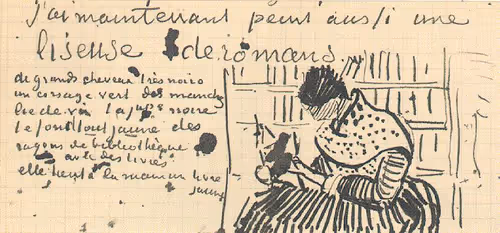 j'ai maintenant peint aussi une
liseuse de romans
de grands cheveux très noirs
un corsage vert des manches
lie de vin la jupe noire
le fond tout jaune des
rayons de bibliothèque
avec des livres
elle tient à la main un livre
jaune